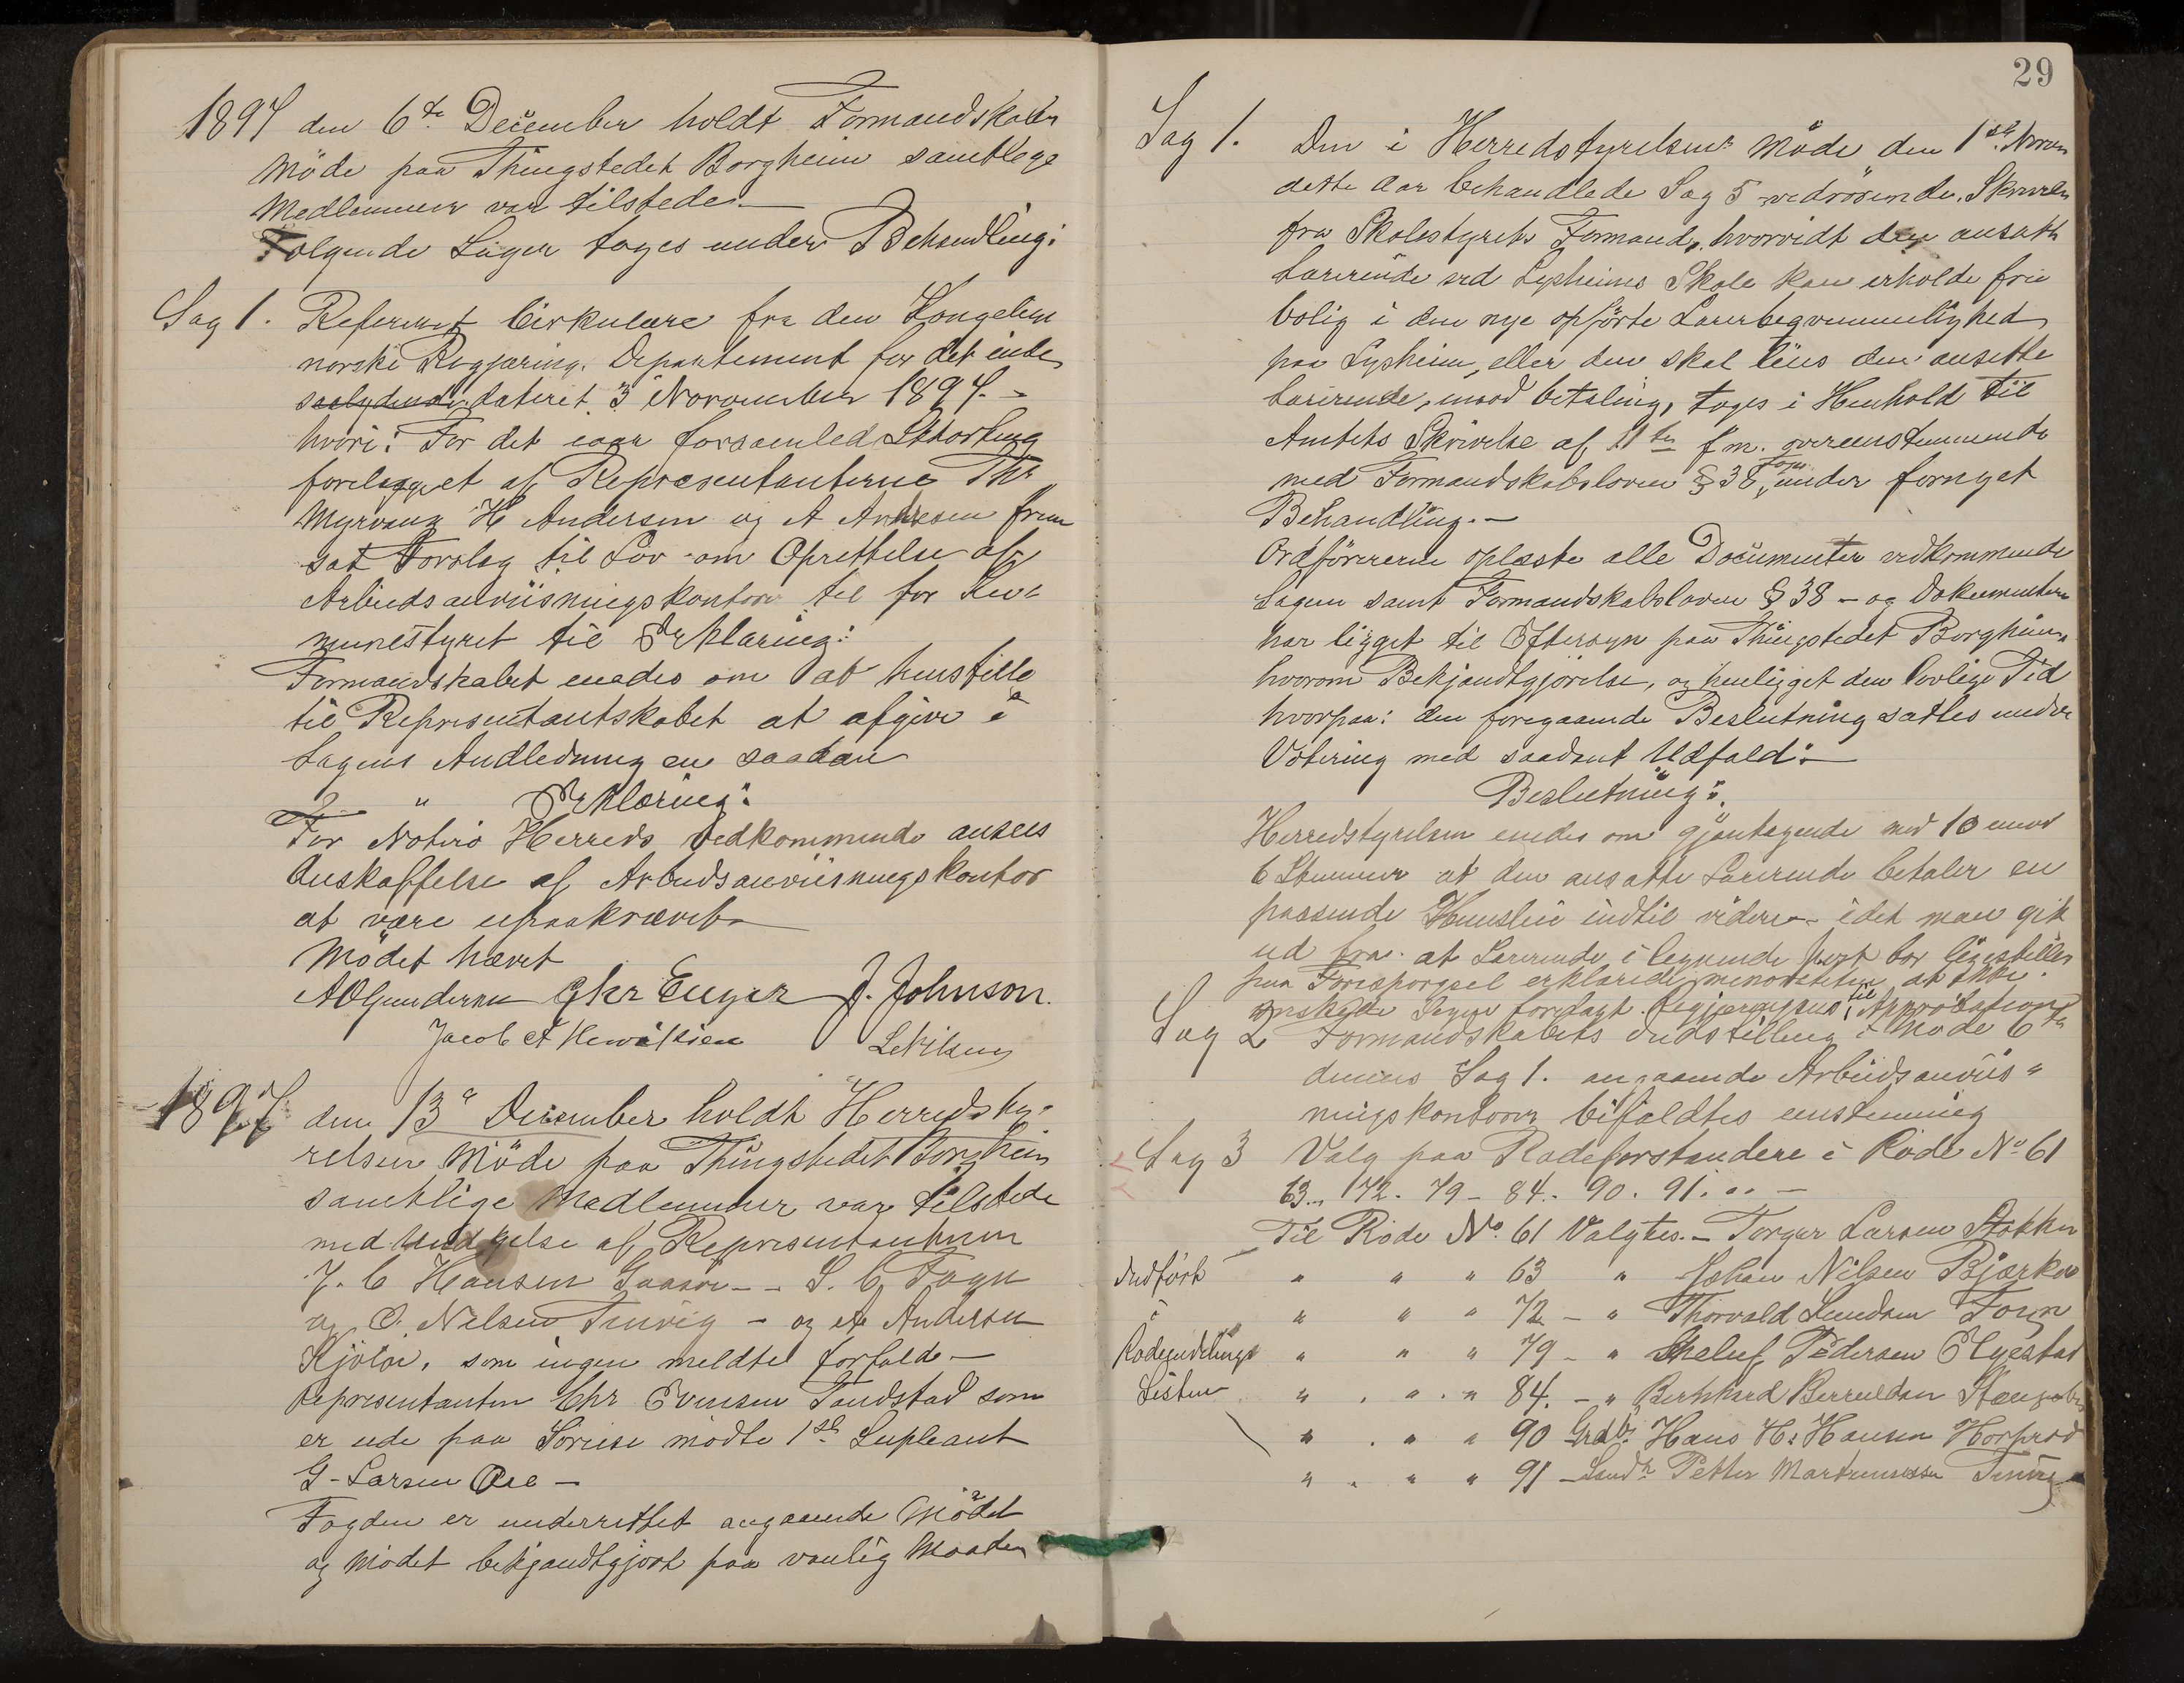 1897 den 6te December holdt Formandskabet
Möde paa Thingstedet Borgheim samtlege
Medlemmer var tilstede.
Følgende Sager toges under Behandling:
Sag 1. Refereret Cirkulære fra den Kongelige
norske Regjæring, Departement for det indre
saalydende dateret 3 November 1897. -
hvori: For det iaar forsamled Storthing
forelagget af Representanterne Thr
Myrvang H Andersen og A Andresen frem
sat Forslag til Lov om Oprettelse af
Arbiedsanviisningskontor til for Kom
munestyret til Erklæring:
Formandskabet enedes om at henstille
til Representantskabet at afgive i
Sagens Andledning en saadan
" Erklæring:
For Notirö Herreds Vedkommende ansees
Anskaffelse af Arbiedsanviisningskontor
at være upaakrævet
Mödet hævet
AOGundersen Chr Enger J. Johnson.
Jacob A
1897 den 13de December holdt Herredsty-
relsen Möde paa Thingstedet Borgheim
samtlige Medlemmer var tilstede
med Undtagelse af Representanterne
J. C Hansen Gaasö - - S. C, Fogn
og O. Nilsen Tinvig - og A Andersen
Kjölö, som ingen meldte forfald -
Representanten Chr Evensen Tandstad som
er ude paa Söreise mödte 1ste Supleant
G - Larsen Öre -
Fogden er underrettet angaaende Mödet
og Mödet bekjandtgjort paa vanlig Maade
29
Sag 1. Den i Herredstyrelsens Möde den 1ste Novem
dette Aar behandlede Sag 5 vedrörende Skrivelse
fra Skolestyrets Formand, hvorvidt den ansatte
Lærerinde ved Lysheims Skole kan erholde frie
bolig i den nye opförte Lærerbeqvemmelighed
paa Lysheim, eller den skal leies den ansette
Lærerinde, mod betaling, toges i Henhold til
Amtets Skrivelse af 11te f.m. overenstemmende
med Formandskabsloven § 38, under fornyet
Behandling. -
Ordföreren oplæste alle Documenter vedkommende
Sagen samt Formandskabsloven § 38 - og Dokumenterne
har ligget til Eftersyn paa Thingstedet Borgheim,
hvorom Bekjandtgjörelse, og henligget den lovlige Tid
hvorpaa: den foregaaende Beslutning sattes under
Votering med saadant Udfald: -
Beslutning:
Herredstyrelsen enedes om gjentagende med 10 imod
6 Stemmer at den ansatte Lærerinde betaler en
passende Huusleie indtil videre - idet man gik
ud fra at Lærerinde i lignende Post bör ligestilles
paa Forespörgsel erklærede minoriteten at ikke
önskede Sagen forelagt Regjæringens til Approbation
Sag 2 Formandskabets Indstilling i Möde 6te
dennes Sag 1. angaaende Arbiedsanviis-
ningskontorer bifaldtes enstemmig
Sag 3 Valg paa Rodeforstandere i Rode No 61
63. 72. 79 - 84. - 90. 91. . . -
Til Rode No 61 Valgtes. - Torger Larsen Stokken
Indfört " " " 63 " Johan Nilsen Bjærkö
i " " " 72 - " Thorvald Fogn
Rodeindelings " " " 79 - " Pedersen Elgestad
Listen " " " 84. - " Bernhard
" " " 90 Grdb. Hans H. Hansen
" " " 91 - Petter Martinussen Tinvig